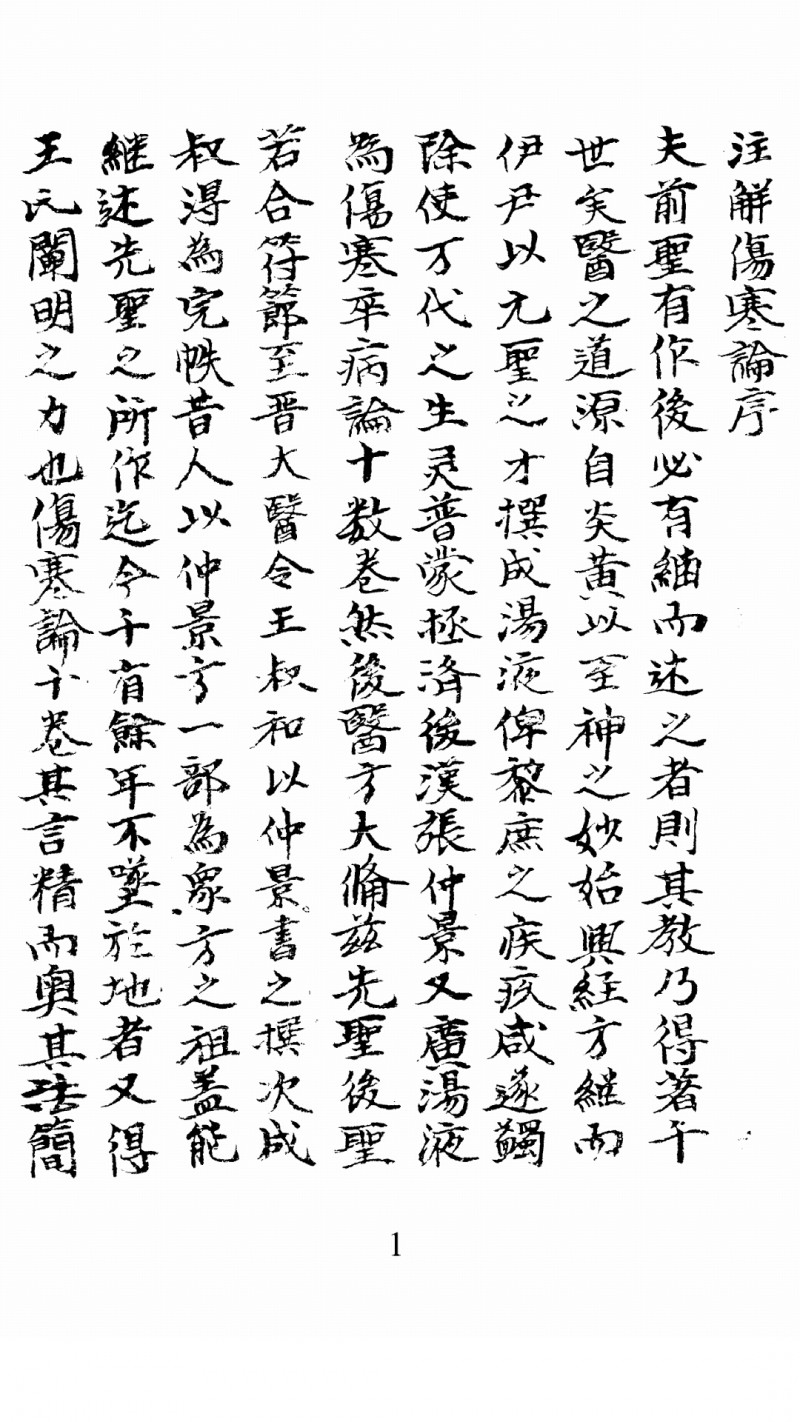 注解傷寒論序
夫前聖有作後必有紬而述之者則其教乃得著于
世矣醫之道源自炎黄以至神之妙始興経方継而
伊尹以元聖之才撰成湯液俾黎庶之疾疚咸遂蠲
除使万代之生灵普蒙拯済後漢張仲景又廣湯液
為傷寒卒病論十数巻然後醫方大備兹先聖後聖
若合符節至晋大醫令王叔和以仲景書之撰次成
叔得為完帙昔人以仲景方一部為衆方之祖盖能
継述先聖之所作迄今千有餘年不墜於地者又得
王氏闡明之力也傷寒論十巻其言精而奥其法簡
1